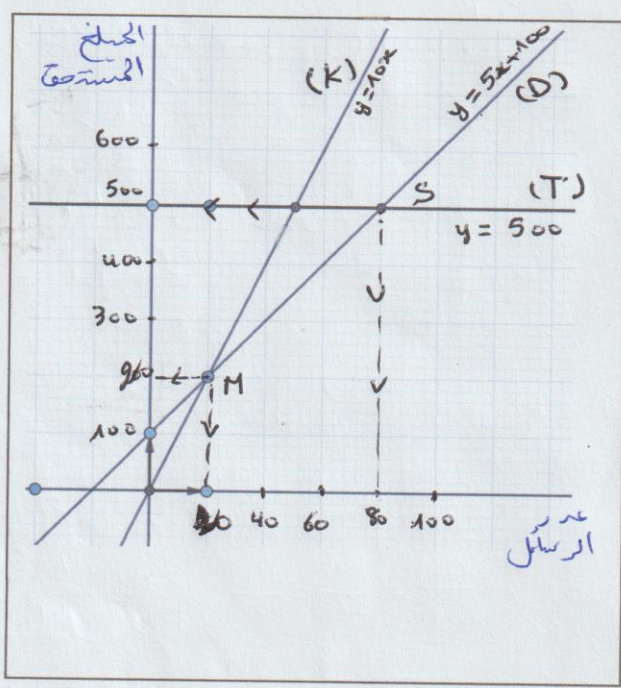 المبلغ
المستحق
(K)
y=10x
y=5x+100
(D)
600
500
S
(T)
y = 500
400
300
200
M
100
20 40 60 80 100
عدد
الرسائل